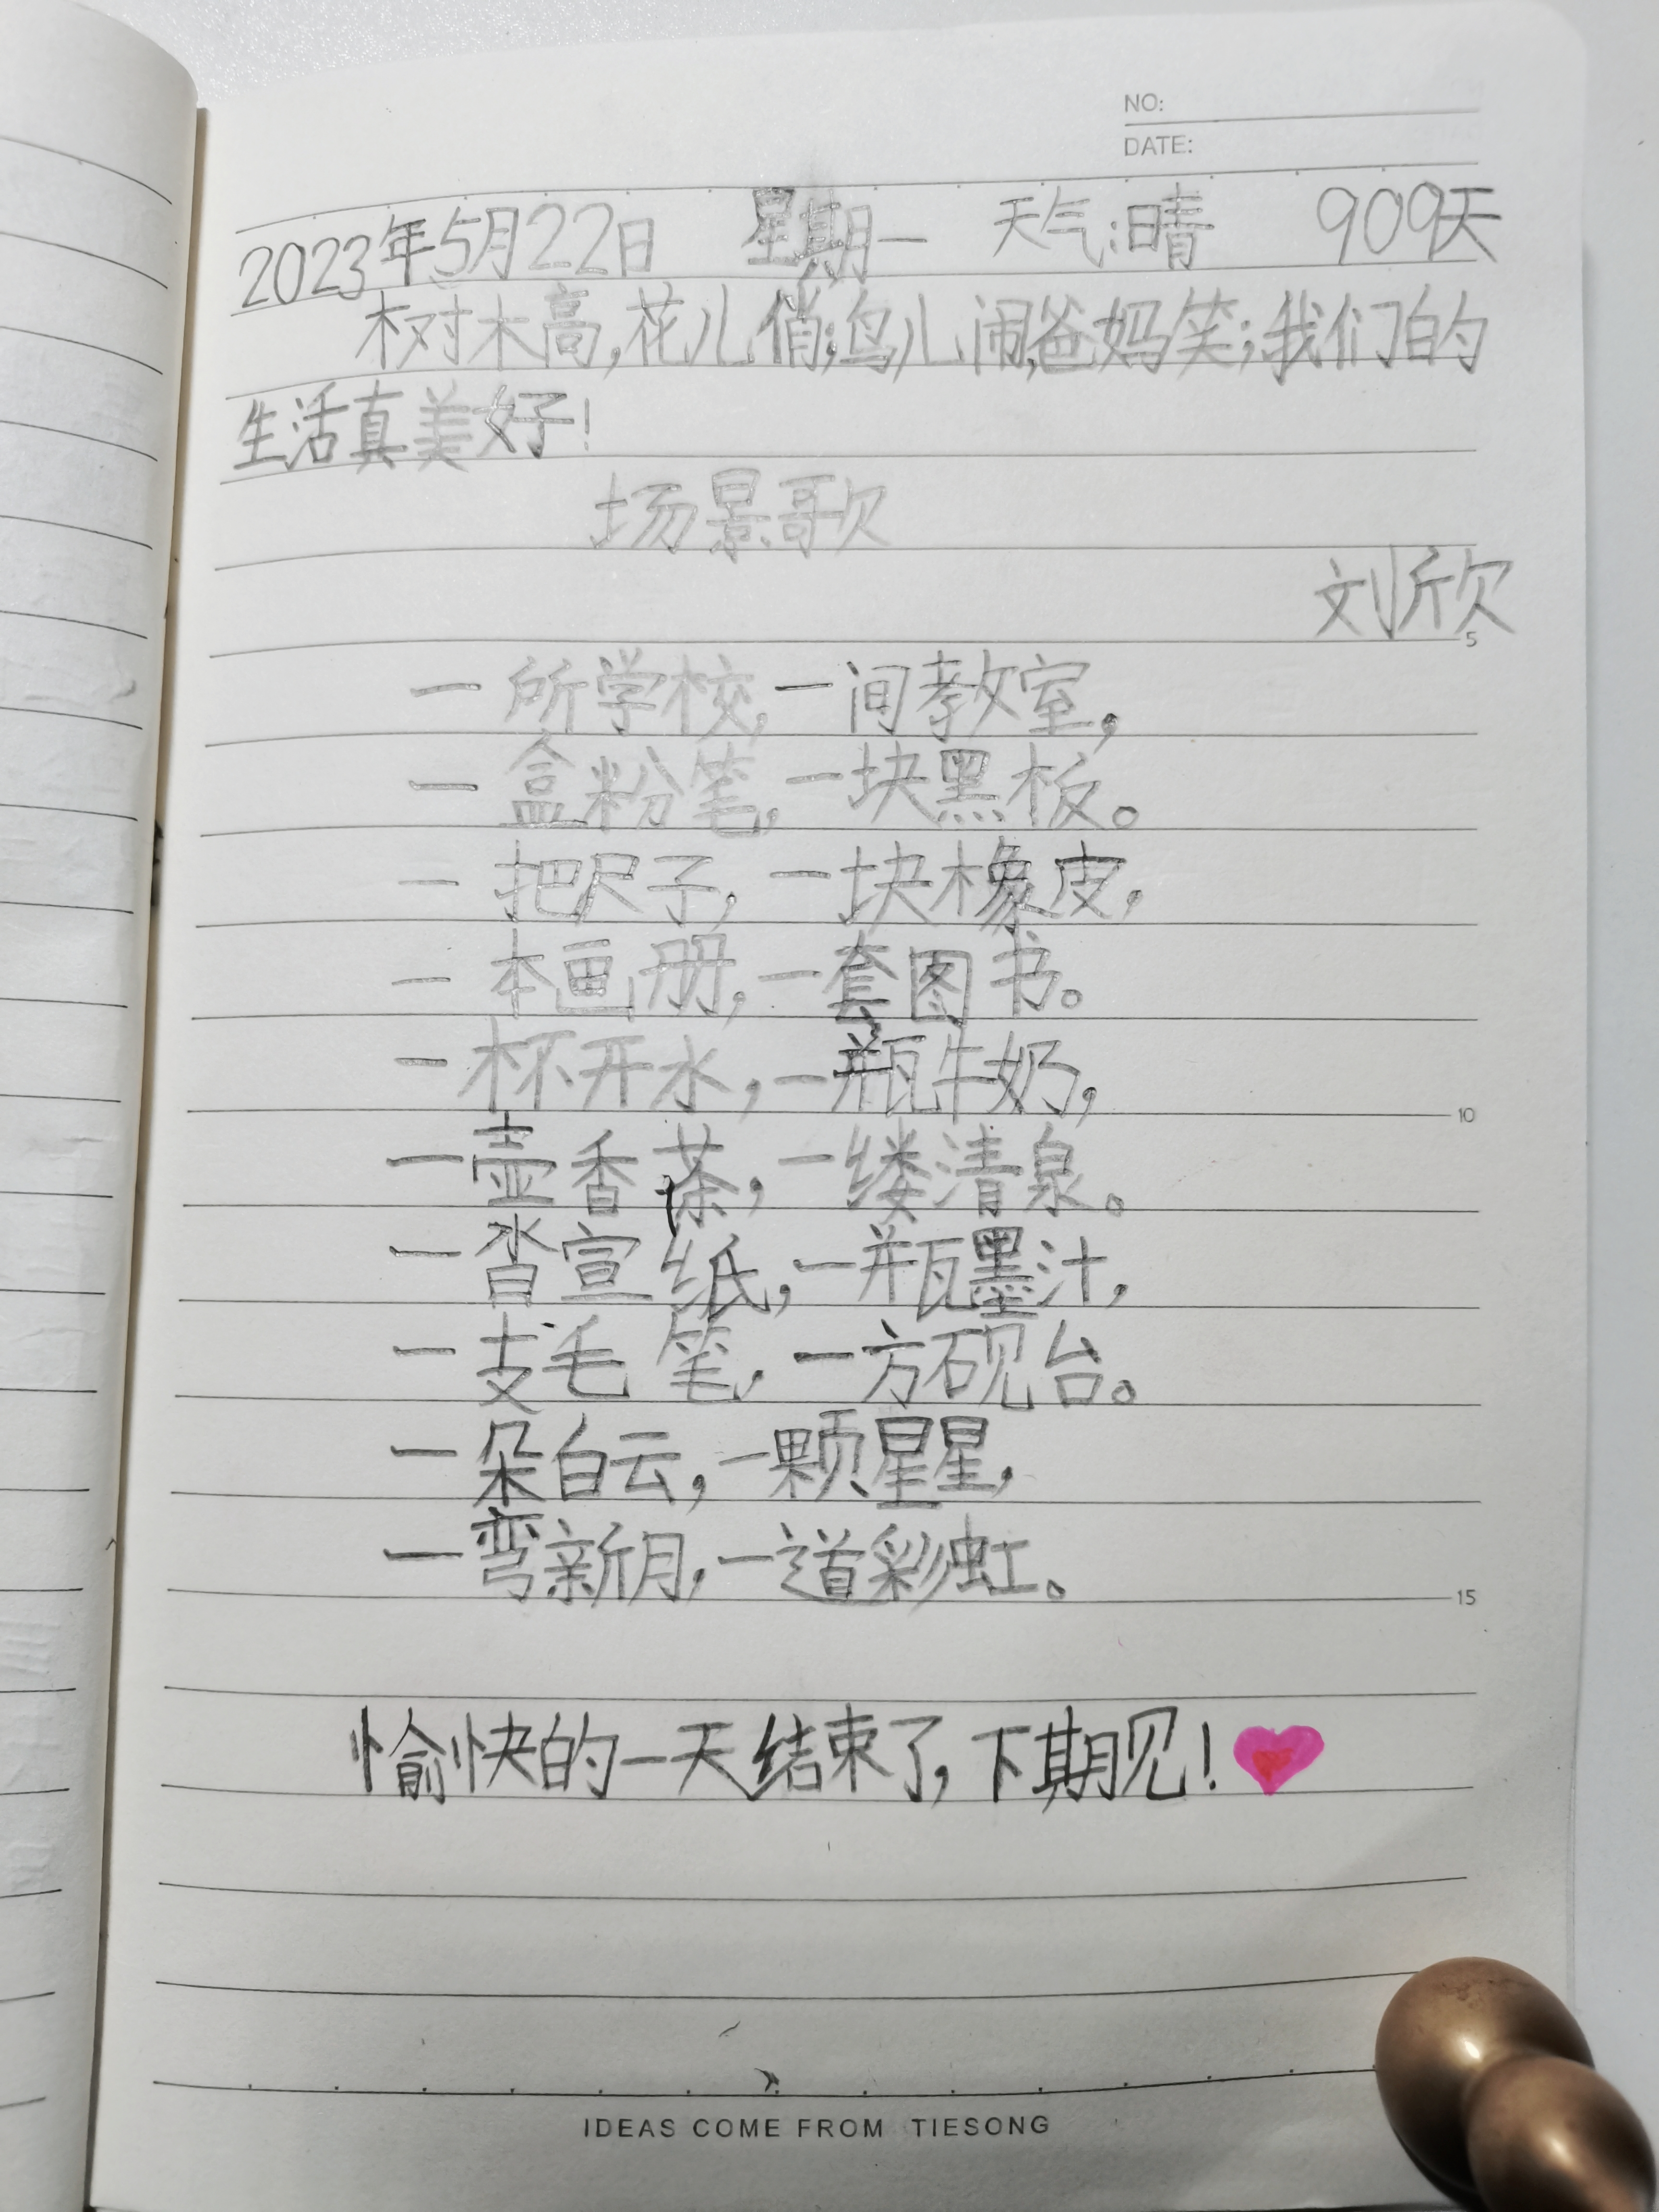 NO:
DATE:
2023年5月22日 星期一 天气:晴 909天
树木高,花儿俏;鸟儿闹,爸妈笑;我们的
生活真美好!
场景歌
刘欣
5
一所学校,一间教室,
一盒粉笔,一块黑板。
一把尺子,一块橡皮,
一本画册,一套图书。
一杯开水,一瓶牛奶,
10
一壶香茶,一缕清泉。
一沓宣纸,一瓶墨汁,
一支毛笔,一方砚台。
一朵白云,一颗星星,
一弯新月,一道彩虹。
15
愉快的一天结束了,下期见!
IDEAS COME FROM TIESONG